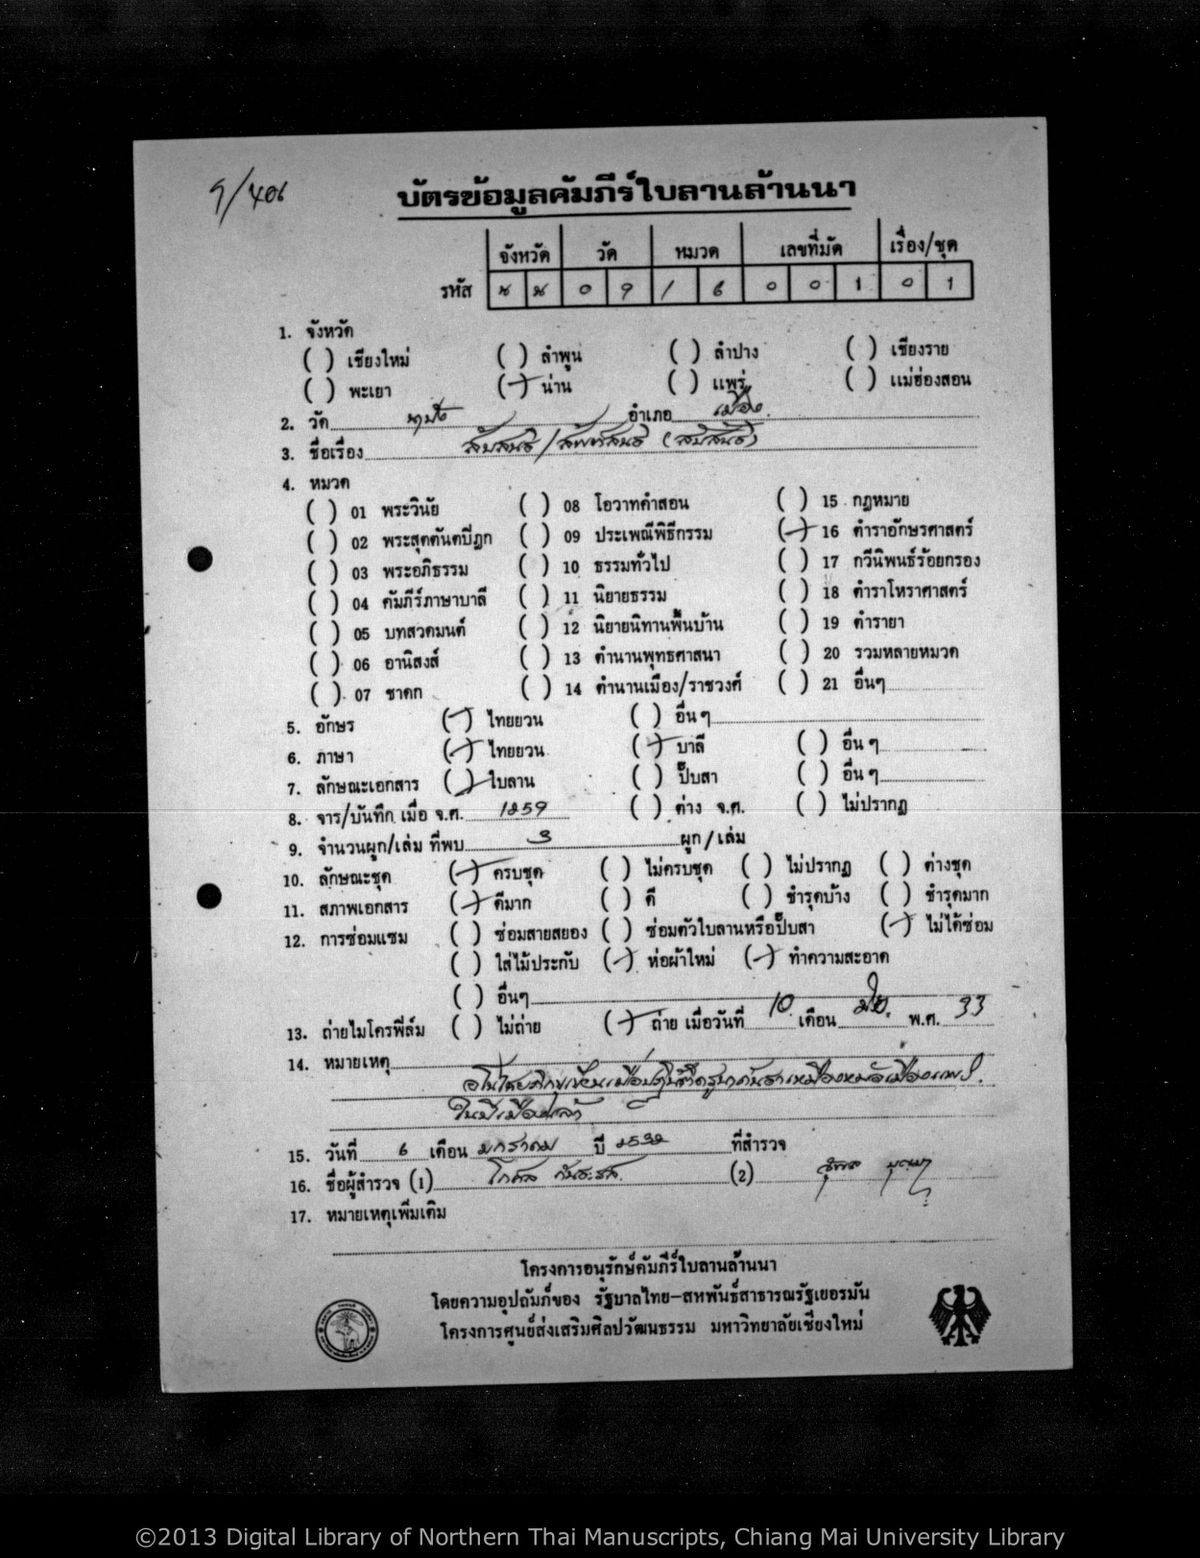 บัตรข้อมูลคัมภีร์ใบลานล้านนา
จังหวัด วัด หมวด เลขที่มัด เรื่อง/ชุด
รหัส น น 0 9 1 6 0 0 1 0 1
1. จังหวัด
( ) เชียงใหม่ ( ) ลำพูน ( ) ลำปาง ( ) เชียงราย
( ) พะเยา ( ) น่าน ( ) แพร่ ( ) แม่ฮ่องสอน
2. วัด อำเภอ เมือง
3. ชื่อเรื่อง
4. หมวด
( ) 01 พระวินัย ( ) 08 โอวาทคำสอน ( ) 15 กฎหมาย
( ) 02 พระสุตตันตปิฎก ( ) 09 ประเพณีพิธีกรรม ( ) 16 ตำราอักษรศาสตร์
( ) 03 พระอภิธรรม ( ) 10 ธรรมทั่วไป ( ) 17 กวีนิพนธ์ร้อยกรอง
( ) 04 คัมภีร์ภาษาบาลี ( ) 11 นิยายธรรม ( ) 18 ตำราโหราศาสตร์
( ) 05 บทสวดมนต์ ( ) 12 นิยายนิทานพื้นบ้าน ( ) 19 ตำรายา
( ) 06 อานิสงส์ ( ) 13 ตำนานพุทธศาสนา ( ) 20 รวมหลายหมวด
( ) 07 ชาดก ( ) 14 ตำนานเมือง/ราชวงศ์ ( ) 21 อื่นๆ
5. อักษร ( ) ไทยยวน ( ) อื่น ๆ
6. ภาษา ( ) ไทยยวน ( ) บาลี ( ) อื่น ๆ
7. ลักษณะเอกสาร ( ) ใบลาน ( ) ปั๊บสา ( ) อื่น ๆ
8. จาร/บันทึก เมื่อ จ.ศ. 1259 ( ) ต่าง จ.ศ. ( ) ไม่ปรากฏ
9. จำนวนผูก/เล่ม ที่พบ 3 ผูก/เล่ม
10. ลักษณะชุด ( ) ครบชุด ( ) ไม่ครบชุด ( ) ไม่ปรากฏ ( ) ต่างชุด
11. สภาพเอกสาร ( ) ดีมาก ( ) ดี ( ) ชำรุดบ้าง ( ) ชำรุดมาก
12. การซ่อมแซม ( ) ซ่อมสายสยอง ( ) ซ่อมตัวใบลานหรือปั๊บสา ( ) ไม่ได้ซ่อม
( ) ใส่ไม้ประกับ ( ) ห่อผ้าใหม่ ( ) ทำความสะอาด
( ) อื่นๆ
13. ถ่ายไมโครฟิล์ม ( ) ไม่ถ่าย ( ) ถ่าย เมื่อวันที่ 10 เดือน พ.ศ. 33
14. หมายเหตุ
15. วันที่ 6 เดือน มกราคม ปี 2532 ที่สำรวจ
16. ชื่อผู้สำรวจ (1) (2)
17. หมายเหตุเพิ่มเติม
โครงการอนุรักษ์คัมภีร์ใบลานล้านนา
โดยความอุปถัมภ์ของ รัฐบาลไทย-สหพันธ์สาธารณรัฐเยอรมัน
โครงการศูนย์ส่งเสริมศิลปวัฒนธรรม มหาวิทยาลัยเชียงใหม่
©2013 Digital Library of Northern Thai Manuscripts, Chiang Mai University Library